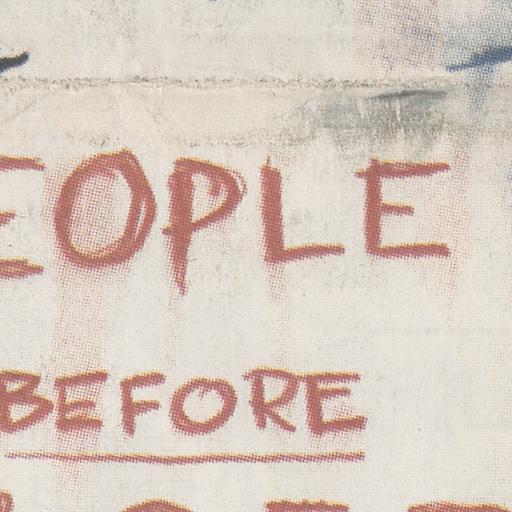 EOPLE
BEFORE